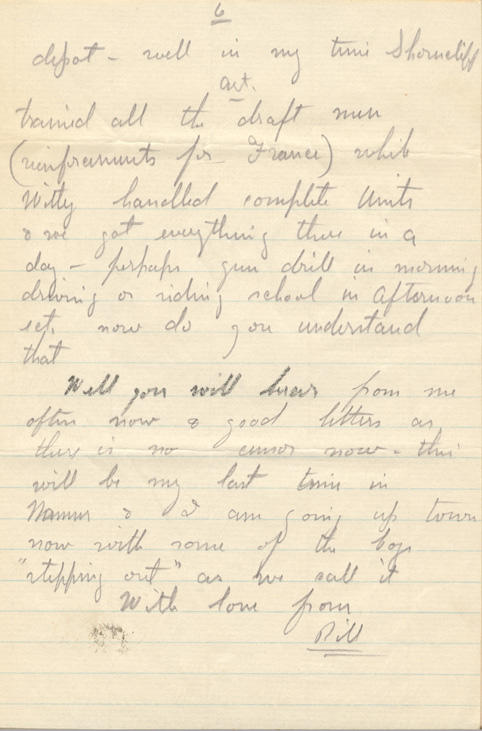 6
depot - well in my time Shorncliff
art.
trained all the draft men
(reinforcements for France) while
Witly handled complete Units
& we got everything there in a
day - perhaps gun drill in morning
driving or riding school in afternoon
ect. now do you understand
that
Well you will hear from me
often now & good letters as
there is no censor now - this
will be my last time in
Namur & I am going up town
now with some of the boys
"stepping out" as we call it
With love from
Bill